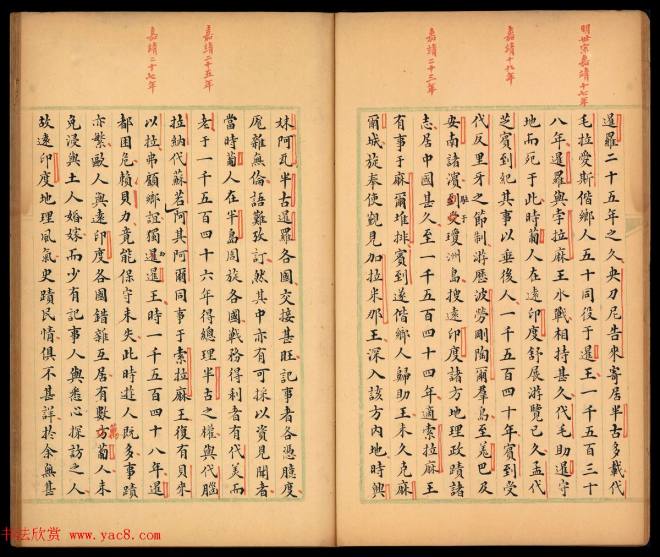 明世宗嘉靖十七年
嘉靖十九年
嘉靖二十三年
暹羅二十五年之久央刀尼告來寄居半古多載代
毛拉愛斯偕鄉人五十同役于暹王一千五百三十
八年暹羅與孛拉麻王水戰相持甚久代毛助暹守
地而死于此時葡人在遠印度舒展游覽已久孟代
芝賓到紀其事以垂後人一千五百四十年賓到受
代反里牙之節制游歷波勞剛陶爾羣島至嵬巴及
安南諸濱到交瓊洲島搜遠印度諸方地理政蹟諸
志居中國甚久至一千五百四十四年適索拉麻王
有事于麻爾堆排賓到遂偕鄉人歸助王未久克麻
爾城旋奉使觀見加拉米那王深入該方內地時興
嘉靖二十五年
嘉靖二十七年
妹阿瓦半古暹羅各國交接甚旺記事者各憑臆度
厖雜無倫語難攷訂然其中亦有可採以資見聞者
當時葡人在半島周族各國戰務得利者有代美而
老于一千五百四十六年得總理半古之權與代腦
拉納代蘇若阿其阿爾同事于索拉麻王復有貝來
以拉弗顧鄉誼獨暹暹王時一千五百四十八年暹
都困危賴貝力竟能保守未失此時遊人既多事蹟
亦繁歐人與遠印度各國錯雜互居有數方葡人未
免浸與土人婚嫁而少有記事人與悉心探訪之人
故遠印度地理風氣史蹟民情俱不甚詳於余無甚
书法欣赏 www.yac8.com